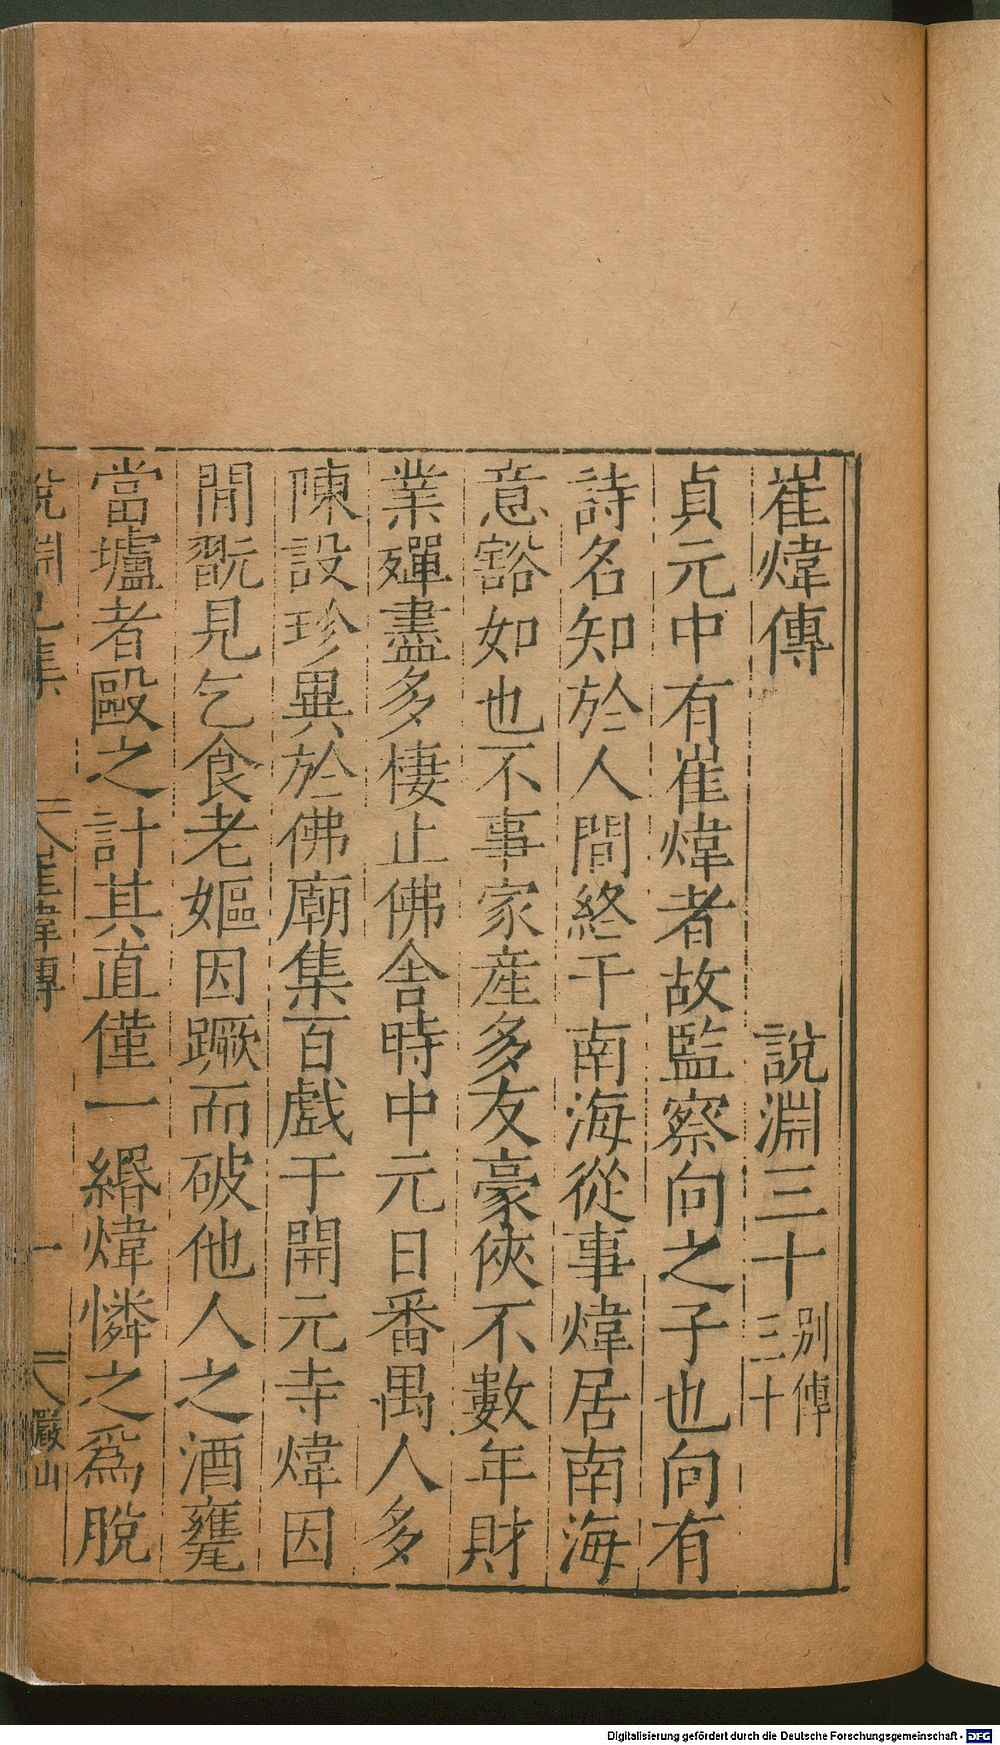 崔煒傳 說淵三十 別傳三十
貞元中有崔煒者故監察向之子也向有
詩名知於人間終于南海從事煒居南海
意豁如也不事家產多友豪俠不數年財
業殫盡多棲止佛舍時中元日番禺人多
陳設珍異於佛廟集百戲于開元寺煒因
閒翫見乞食老嫗因蹶而破他人之酒甕
當壚者毆之計其直僅一緡煒憐之爲脫
說淵己集 崔煒傳 一 儼山
Digitalisierung gefördert durch die Deutsche Forschungsgemeinschaft - DFG